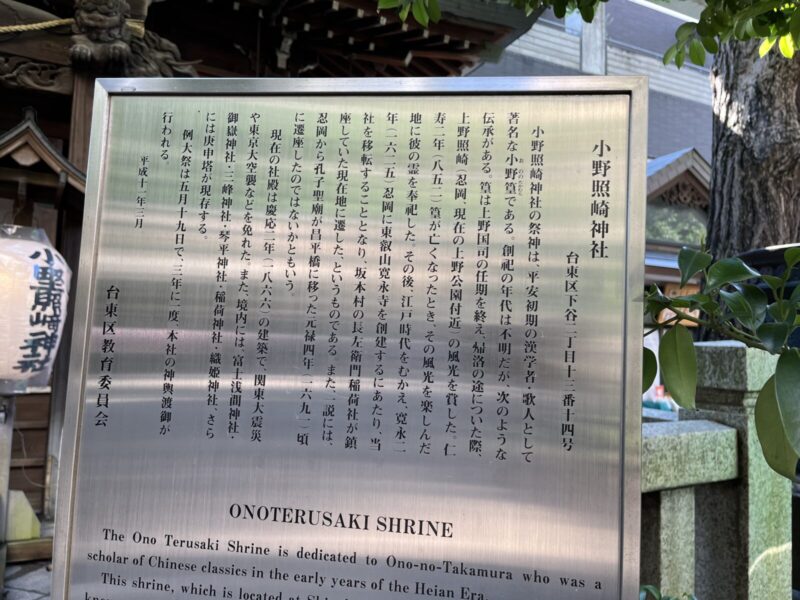 小野照崎神社
台東区下谷二丁目十三番十四号
小野照崎神社の祭神は、平安初期の漢学者・歌人として
著名な小野篁である。創祀の年代は不明だが、次のような
伝承がある。篁は上野国司の任期を終え、帰洛の途についた際、
上野照崎(忍岡、現在の上野公園付近)の風光を賞した。仁
寿二年(八五二)篁が亡くなったとき、その風光を楽しんだ
地に彼の霊を奉祀した。その後、江戸時代をむかえ、寛永二
年(一六二五)忍岡に東叡山寛永寺を創建するにあたり、当
社を移転することとなり、坂本村の長左衛門稲荷社が鎮
座していた現在地に遷した、というものである。また、一説には、
忍岡から孔子聖廟が昌平橋に移った元禄四年(一六九一)頃
に遷座したのではないかともいう。
現在の社殿は慶応二年(一八六六)の建築で、関東大震災
や東京大空襲などを免れた。また、境内には、富士浅間神社・
御嶽神社・三峰神社・琴平神社・稲荷神社・織姫神社、さら
には庚申塔が現存する。
例大祭は五月十九日で、三年に一度、本社の神輿渡御が
行われる。
平成十一年三月
台東区教育委員会
ONOTERUSAKI SHRINE
The Ono Terusaki Shrine is dedicated to Ono-no-Takamura who was a
scholar of Chinese classics in the early years of the Heian Era.
This shrine, which is located at
小野照崎神社